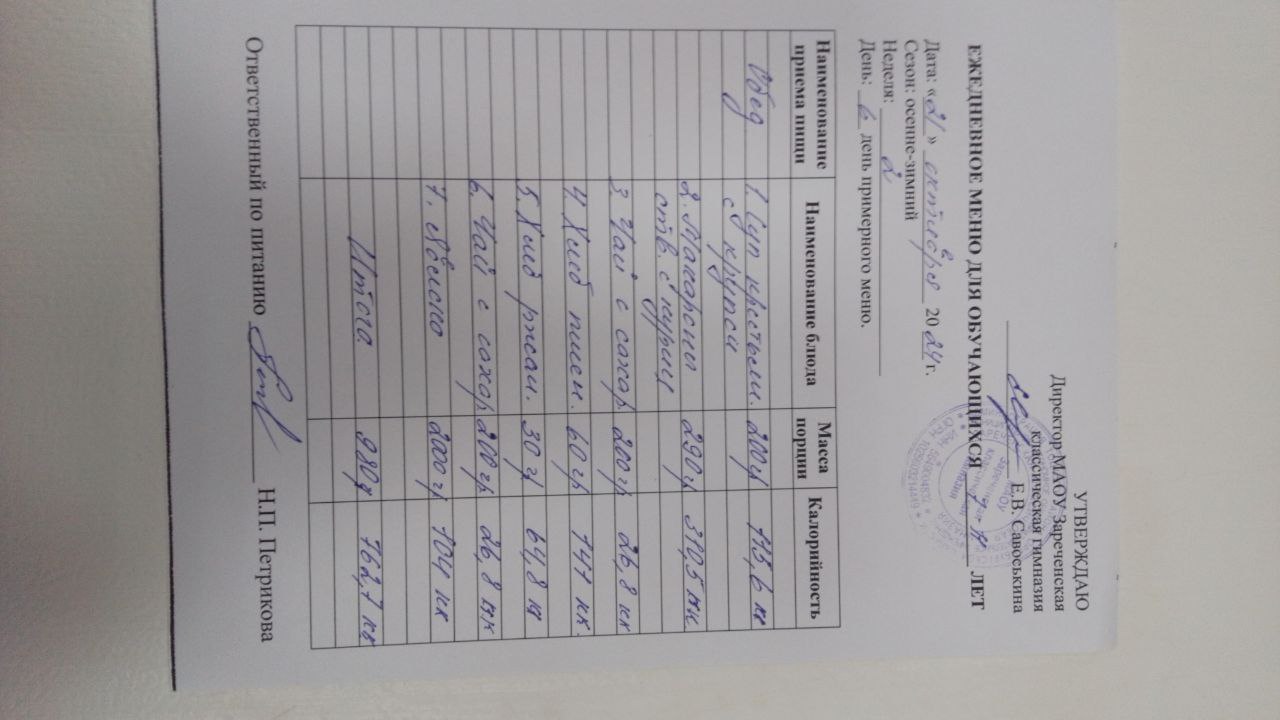 УТВЕРЖДАЮ
Директор МАОУ Зареченская
классическая гимназия
Е.В. Савоськина
ЕЖЕДНЕВНОЕ МЕНЮ ДЛЯ ОБУЧАЮЩИХСЯ ЛЕТ
Дата: «21» октября 2024 г.
Сезон: осенне-зимний
Неделя: 2
День: 6 день примерного меню.
Наименование приема пищи Наименование блюда Масса порции Калорийность
Обед 1. Суп крестьян. 200гр 113,6 кк
с крупой
2. Макароны 290гр 310,5 кк
отв. с куриц
3. Чай с сахар 200гр 26,8 кк
4. Хлеб пшен. 60 гр 141 кк.
5. Хлеб ржан. 30 гр 64,8 кк
6. Чай с сахар 200 гр 26,8 кк
7. Яблоко 2000 гр 104 кк
Итого 980гр 762,7 кк
Ответственный по питанию Н.П. Петрикова